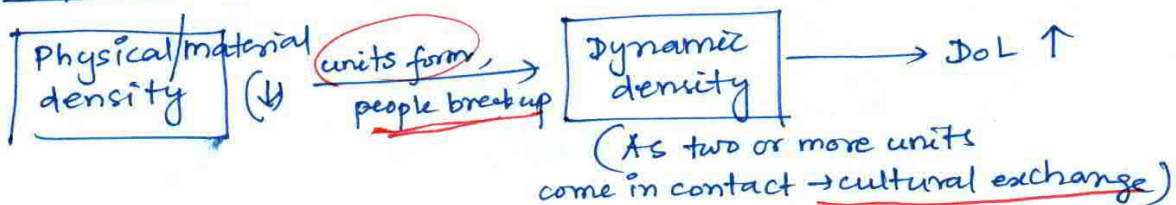 Physical/material density (↓)
units form,
people breakup
Dynamic density
→ DoL ↑
(As two or more units
come in contact → cultural exchange)